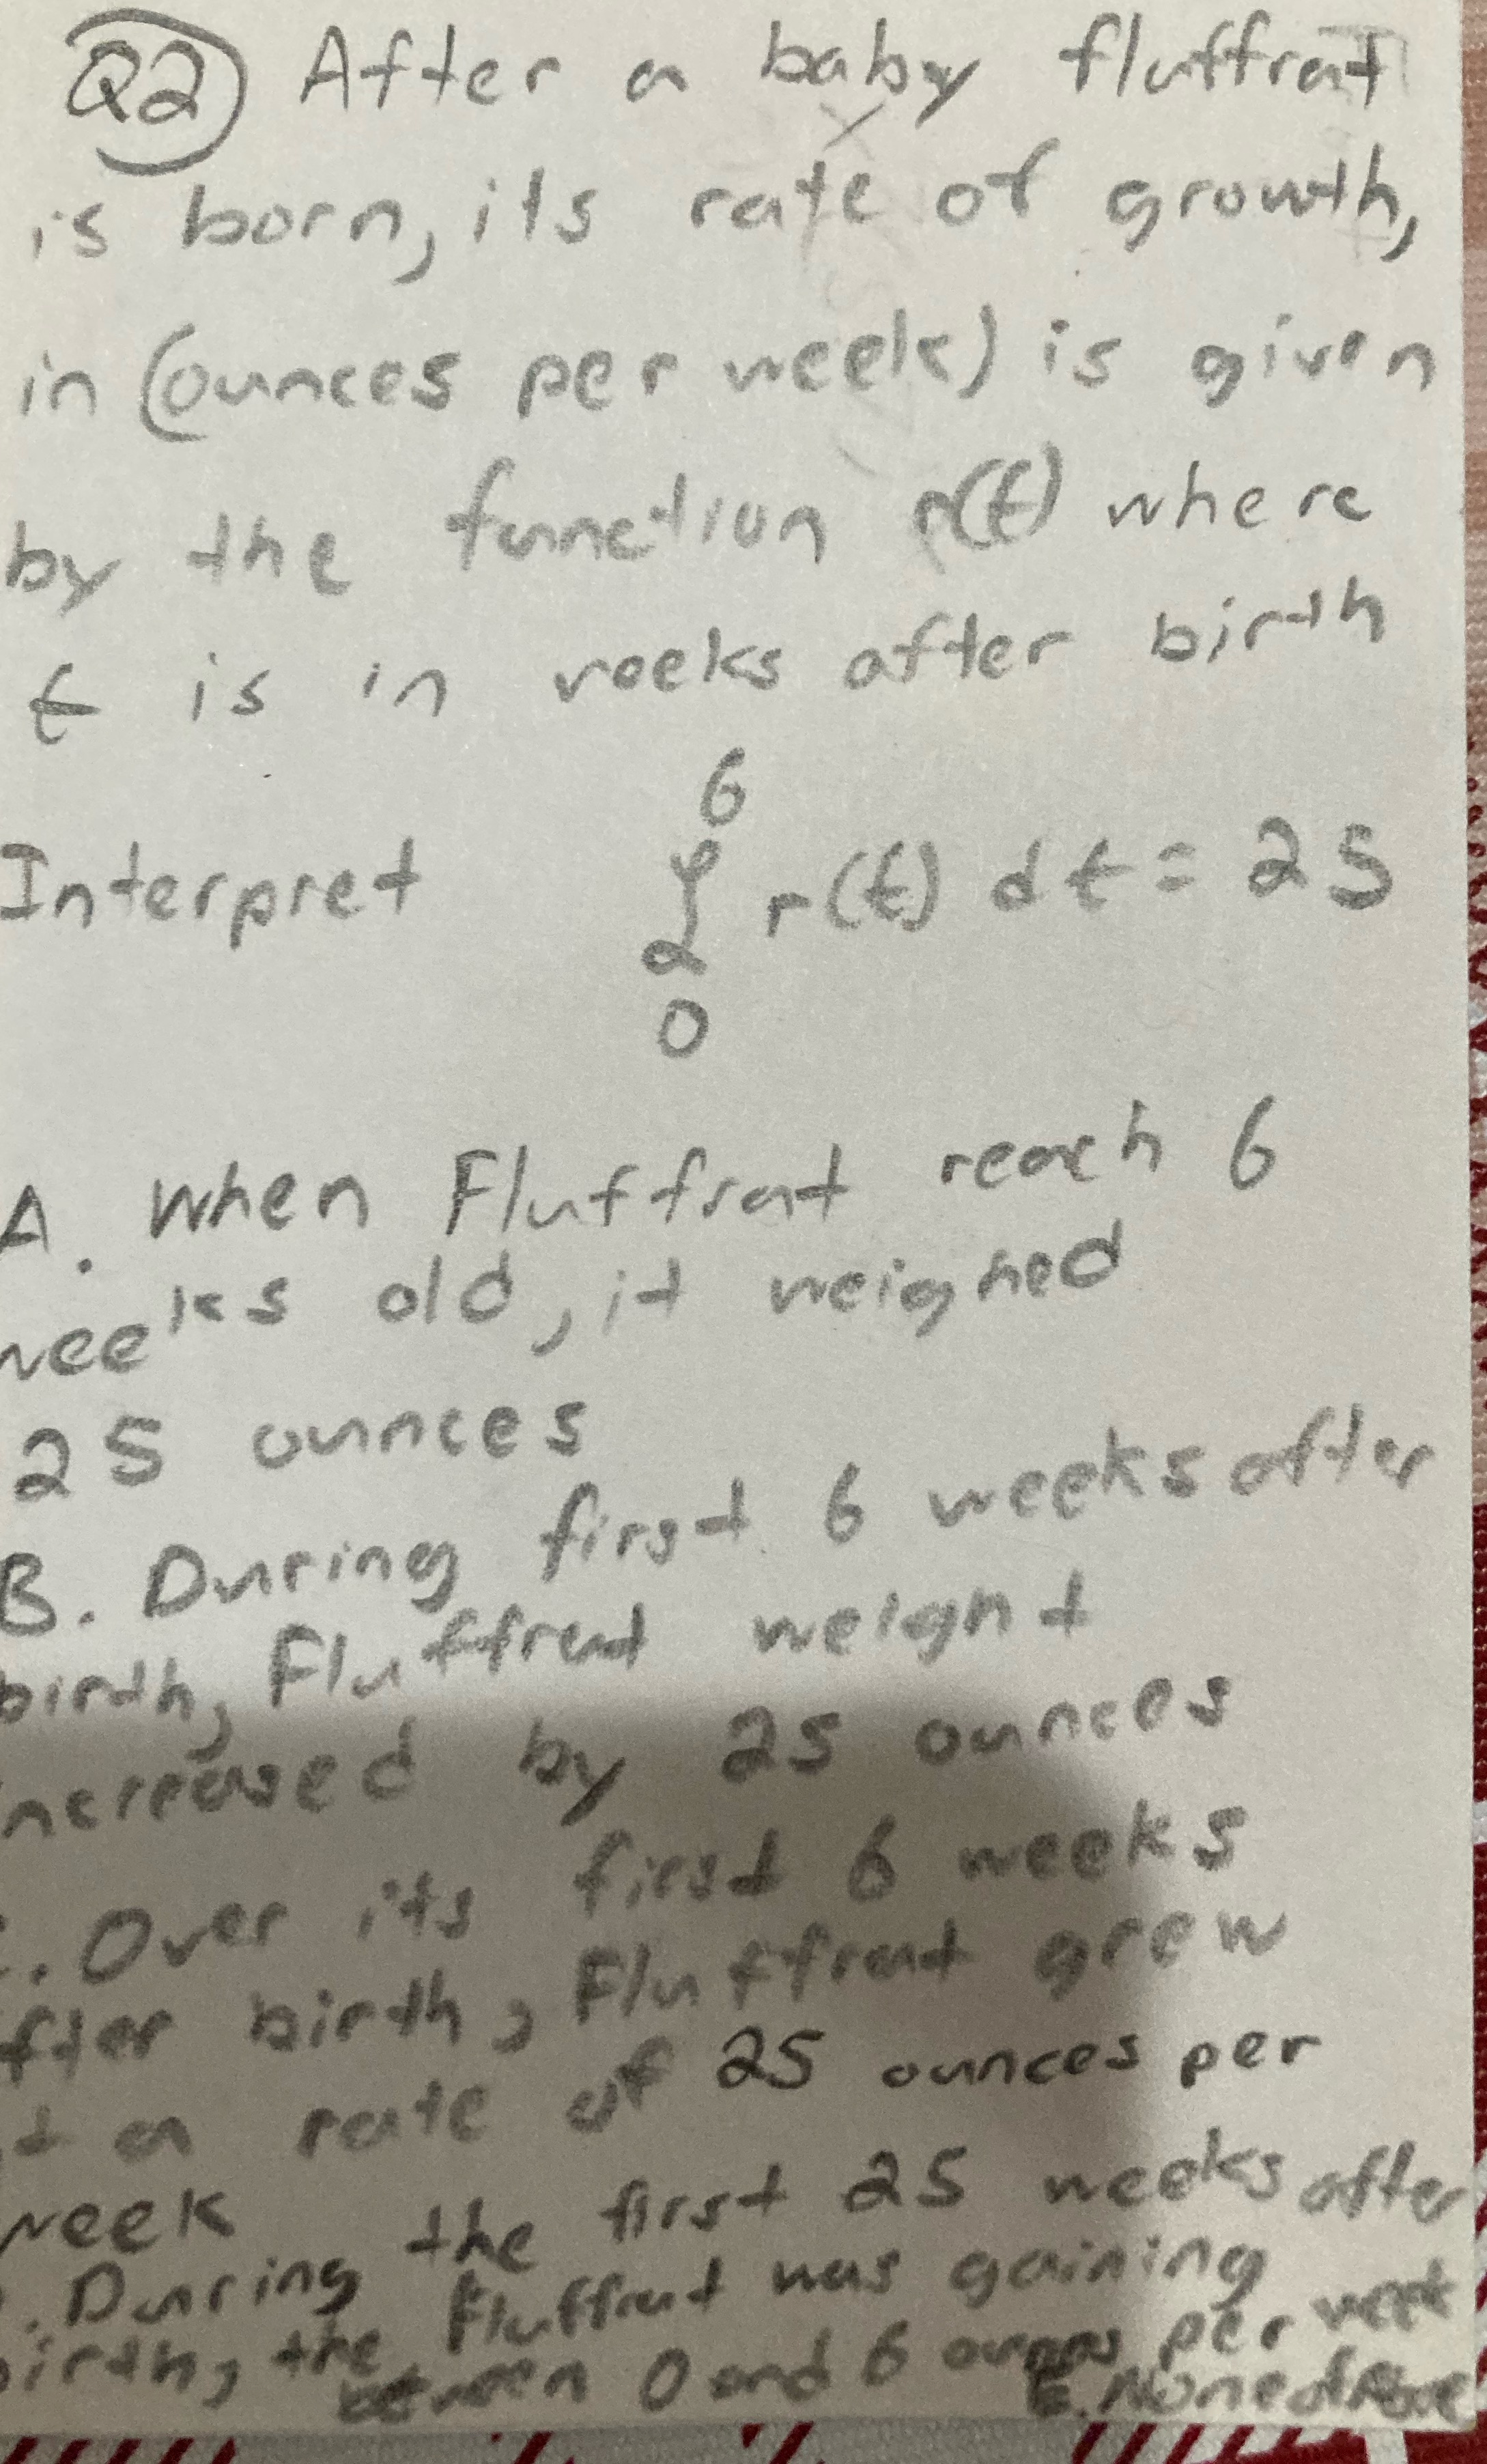 Q2 After a baby fluffrat
is born, its rate of growth,
in (ounces per week) is given
by the function r(t) where
t is in weeks after birth
6
Interpret ∫ r(t) dt = 25
0
A. When Fluffrat reach 6
weeks old, it weighed
25 ounces
B. During first 6 weeks after
birth, Fluffrat weight
increased by 25 ounces
. Over its first 6 weeks
fter birth, Fluffrat grew
t a rate of 25 ounces per
week
. During the first 25 weeks after
birth, the Fluffrat was gaining
between 0 and 6 ounces per week
E. None of Above